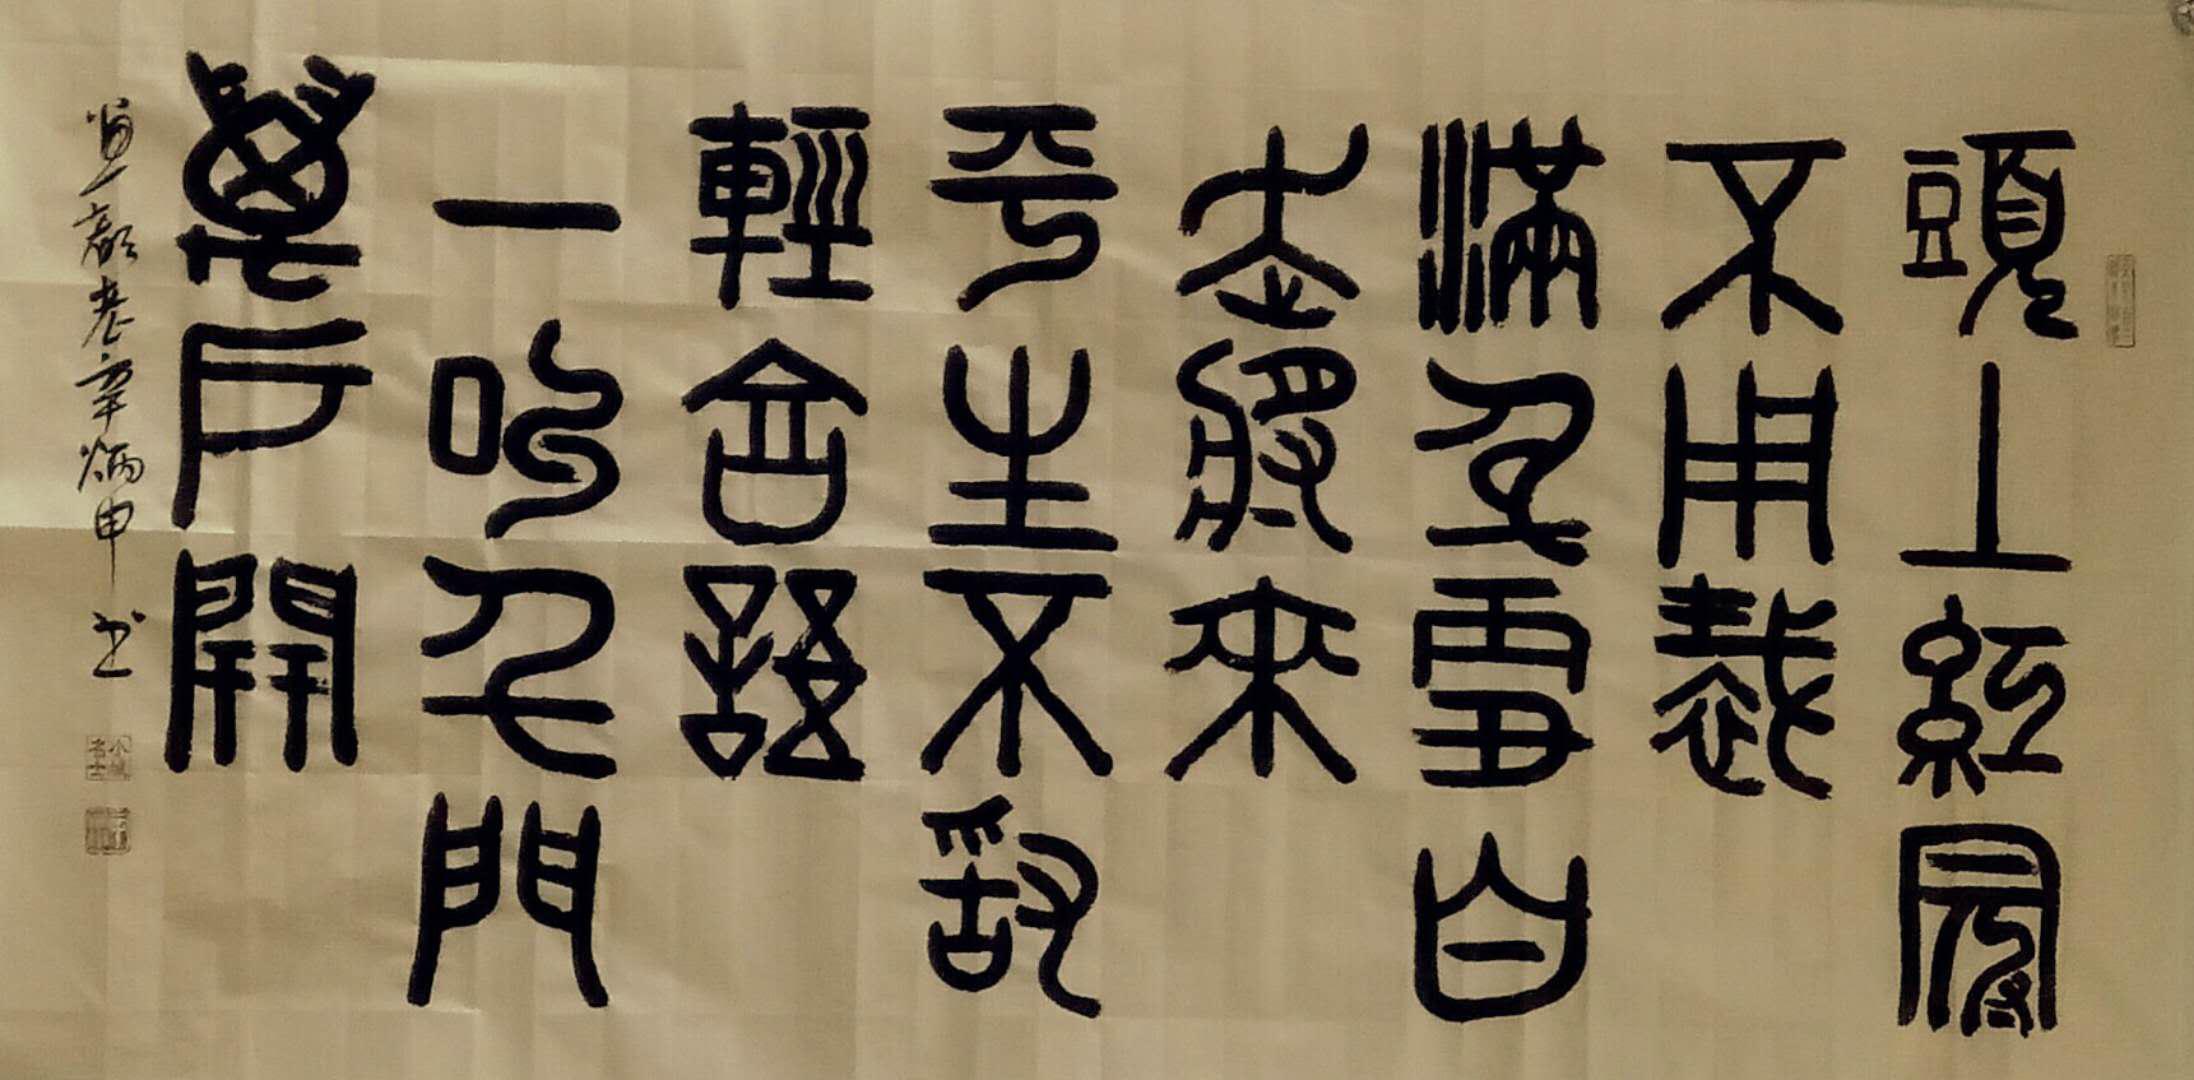 頭上紅冠
不用裁
滿身雪白
走將來
平生不敢
輕言語
一叫千門
萬戶開
老辛炳申书